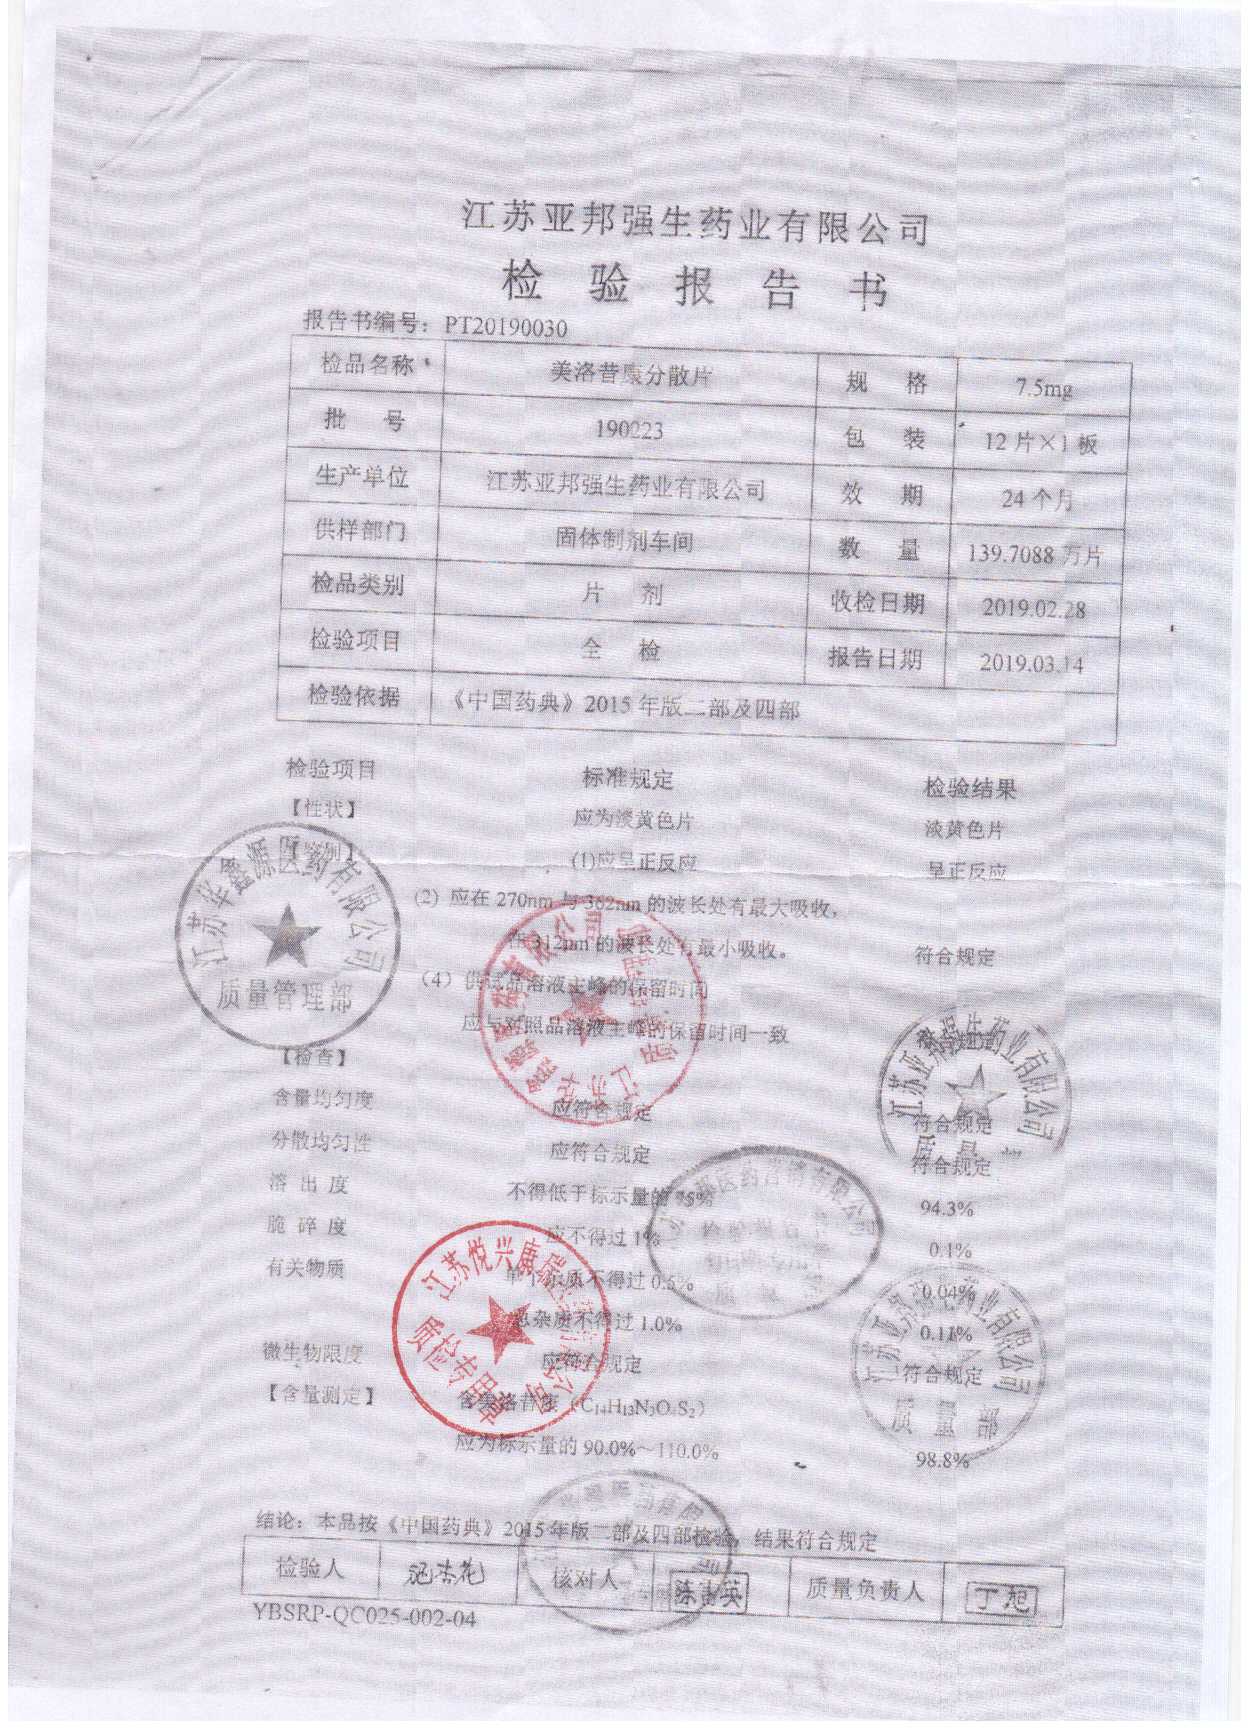 江苏亚邦强生药业有限公司
检验报告书
报告书编号：PT20190030
检品名称 美洛昔康分散片 规格 7.5mg
批号 190223 包装 12片×1板
生产单位 江苏亚邦强生药业有限公司 效期 24个月
供样部门 固体制剂车间 数量 139.7088万片
检品类别 片剂 收检日期 2019.02.28
检验项目 全检 报告日期 2019.03.14
检验依据 《中国药典》2015年版二部及四部
检验项目 标准规定 检验结果
【性状】 应为淡黄色片 淡黄色片
【鉴别】 (1)应呈正反应 呈正反应
(2) 应在270nm与362nm的波长处有最大吸收，
在312nm的波长处有最小吸收。 符合规定
(4) 供试品溶液主峰的保留时间
应与对照品溶液主峰的保留时间一致
【检查】
含量均匀度 应符合规定 符合规定
分散均匀性 应符合规定 符合规定
溶出度 不得低于标示量的75% 94.3%
脆碎度 应不得过1% 0.1%
有关物质 单个杂质不得过0.5% 0.04%
总杂质不得过1.0% 0.11%
微生物限度 应符合规定 符合规定
【含量测定】 含美洛昔康（C14H13N3O4S2）
应为标示量的90.0%～110.0% 98.8%
结论：本品按《中国药典》2015年版二部及四部检验，结果符合规定
检验人 核对人 质量负责人 丁旭
YBSRP-QC025-002-04
江苏华鑫源医药有限公司
质量管理部
江苏亚邦强生药业有限公司
江苏悦兴康
质检专用章
药业有限公司
质量部